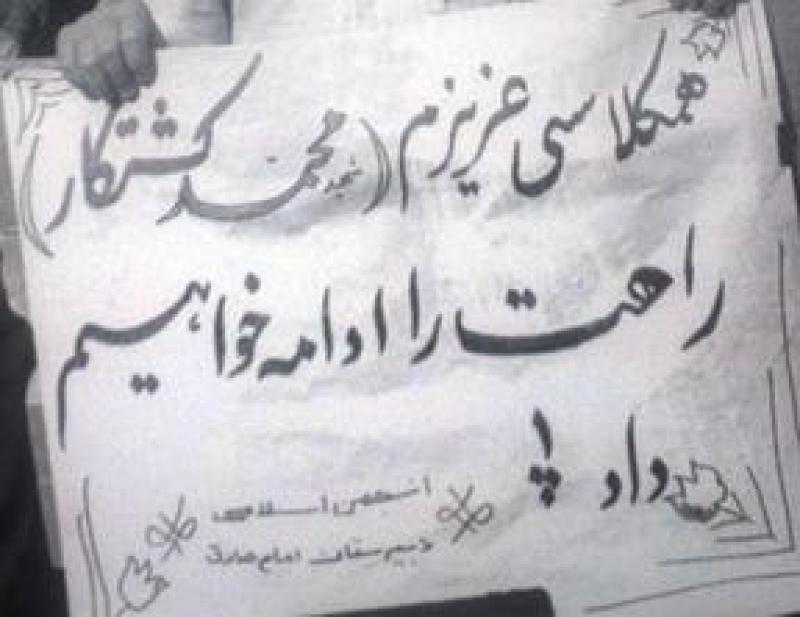 همکلاسی عزیزم (شهید محمد کشتکار)
راهت را ادامه خواهیم
داد
انجمن اسلامی
دبیرستان امام صادق